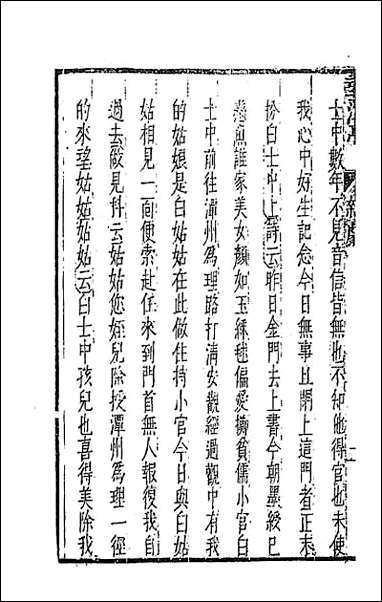 士中數年不見音信皆無也不知他得官也未使
我心中好生記念今日無事且閉上這門者正末
扮白士中上詩云昨日金門去上書今朝墨綬已
懸魚誰家美女顏如玉綵毬偏愛擲貧儒小官白
士中前往潭州爲理路打清安觀經過觀中有我
的姑娘是白姑姑在此做住持小官今日與白姑
姑相見一面便索赴任來到門首無人報復我自
過去做見科云姑姑您姪兒除授潭州爲理一徑
的來望姑姑姑姑云白士中孩兒也喜得美除我